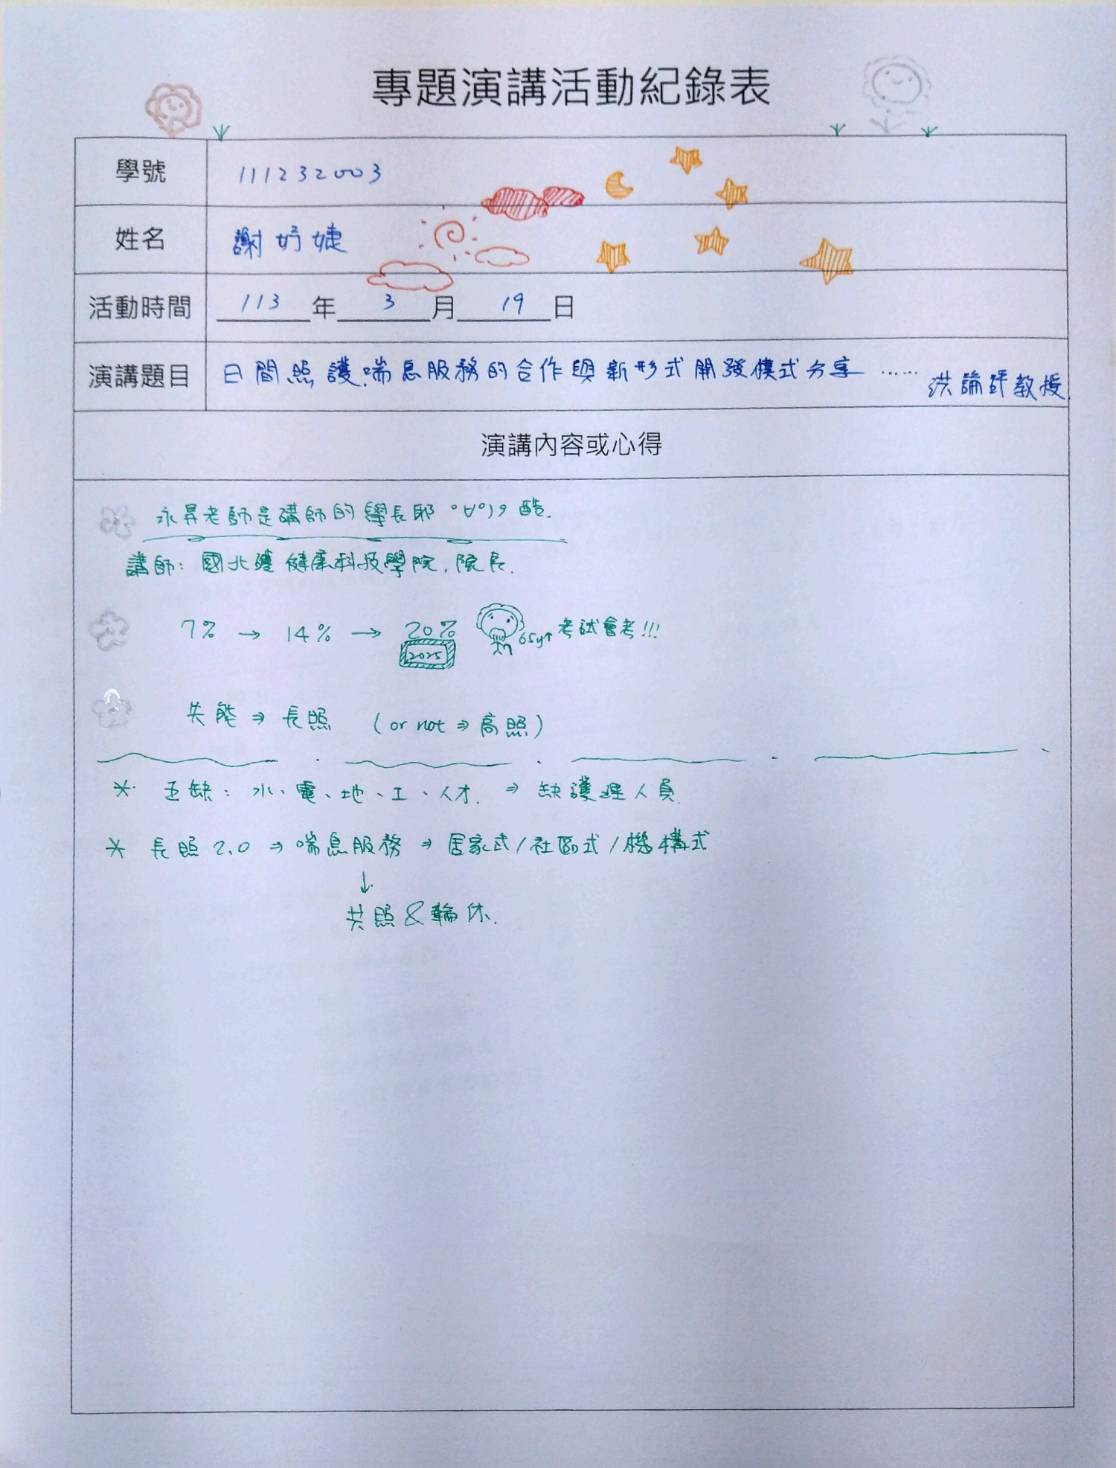 專題演講活動紀錄表
學號 111232003
姓名 謝妤婕
活動時間 113年3月19日
演講題目 日間照護喘息服務的合作與新形式開發模式分享……
洪論評教授
演講內容或心得
永昇老師是講師的學長耶 酷.
講師: 國北護 健康科技學院, 院長.
7% → 14% → 20% 65y↑ 考試會考!!!
2025
失能 ⇒ 長照 (or not ⇒ 高照)
* 五缺: 水、電、地、工、人才. ⇒ 缺護理人員
* 長照 2.0 ⇒ 喘息服務 ⇒ 居家式/社區式/機構式
↓
共照 & 輪休.